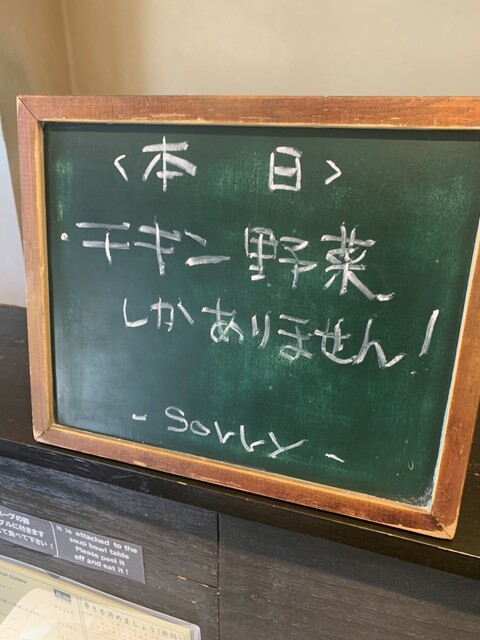 <本 日>
・チキン野菜
しかありません!
- Sorry -
ープの器
ブルに付きます
て食べて下さい!
It is attached to the
soup bowl table
Please peel it
off and eat it!